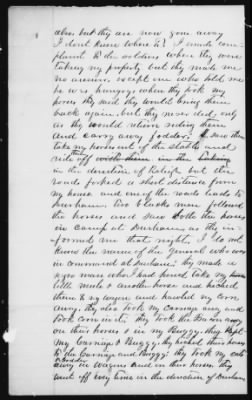 also but they are now gone away
I dont know where to! I made com
plaint to the soldiers when they were
taking my property but they made me
no answer. except one who told me
he was hungry. when they took my
horses they said they would bring them
back again. but they never did. only
as they would return riding them
and carry away fodder. I saw them
take my horses out of the stable and
ride off with them in the
in the direction of Raleigh but the
roads forked a short distance from
my house and one of the roads leads to
Durham. two blacks men followed
the horses and saw both the horses
in camp at Durham as they in
formed me that night. I do not
know the name of the general who was
in command at Durham. they made a
negro man who I had hired take my
little mule & another horse and hitched
them to my wagon and hauled my corn
away. they also took my carriage away and
took corn in it. they took the Bacon away
on their horses & in my Buggy. they kept
my Carriage & Buggy. they hitched their horses
to the Carriage and Buggy. they took my oats
& fodder
away in wagons and on their horses. they
went off every time in the direction of Durham